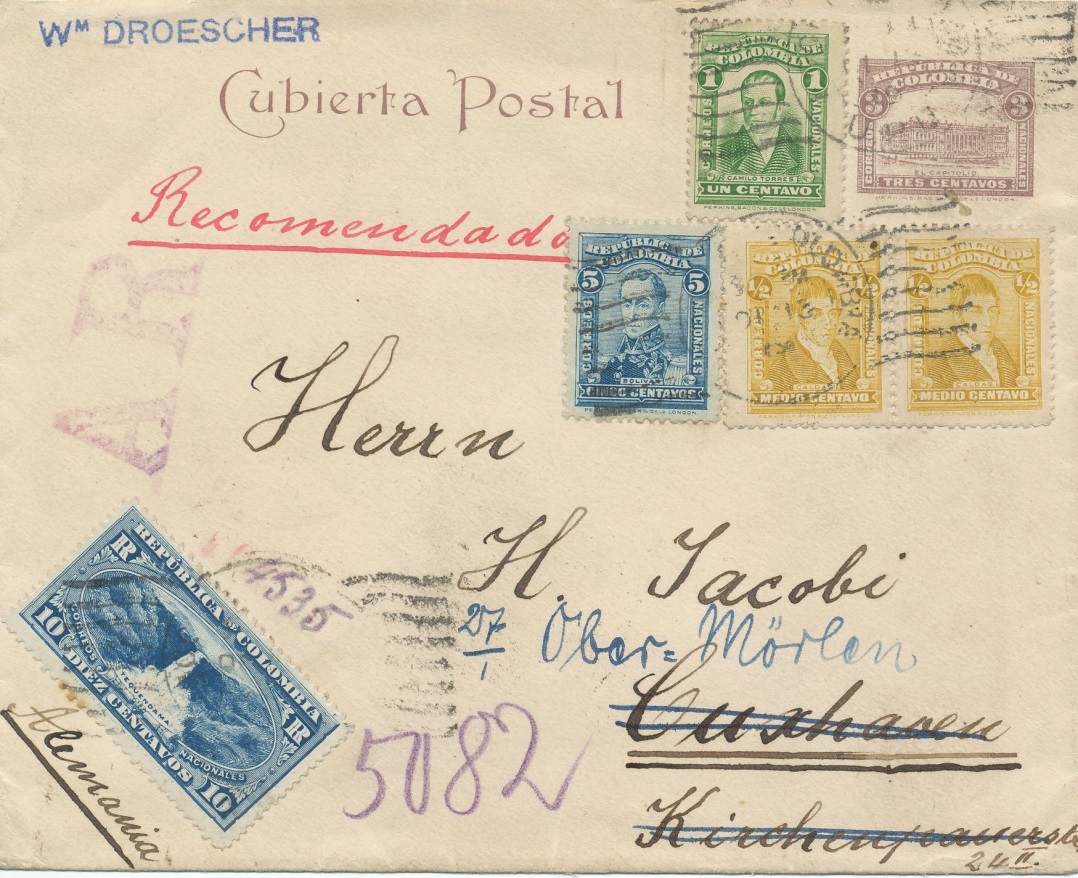 Wᴹ DROESCHER
Cubierta Postal
Recomendado
A R
REPÚBLICA DE
COLOMBIA
1 1
CORREOS
NACIONALES
CAMILO TORRES
UN CENTAVO
PERKINS, BACON & Cº LD LONDON
REPÚBLICA DE
COLOMBIA
3 3
CORREOS
NACIONALES
EL CAPITOLIO
TRES CENTAVOS
REPÚBLICA DE
COLOMBIA
5 5
CORREOS
NACIONALES
BOLÍVAR
CINCO CENTAVOS
REPÚBLICA DE
COLOMBIA
½ ½
CORREOS
NACIONALES
CALDAS
MEDIO CENTAVO
REPÚBLICA DE
COLOMBIA
½ ½
CORREOS
NACIONALES
CALDAS
MEDIO CENTAVO
Herrn
H. Jacobi
27/1
Ober-Mörlen
Cuxhaven
Kirchenpauerstr
24 II.
4535
5082
R REPÚBLICA DE COLOMBIA R
CORREOS NACIONALES
TEQUENDAMA
10 DIEZ CENTAVOS 10
Alemania